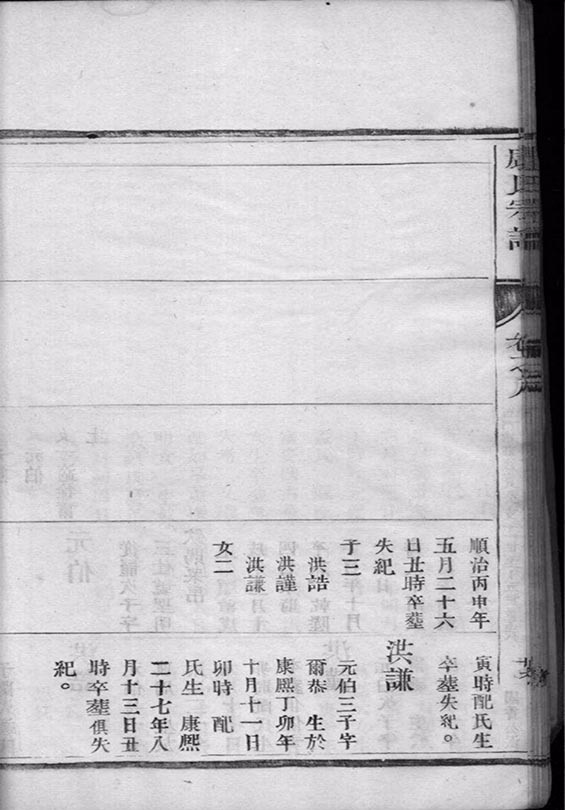 氏宗譜
順治丙申年
五月二十六
日丑時卒塟
失紀
子三
洪誥
洪謹
洪謙
女二
寅時配氏生
卒塟失紀。
洪謙
元伯三子字
爾恭 生於
康熙丁卯年
十月十一日
卯時 配
氏生 康熙
二十七年八
月十三日丑
時卒塟俱失
紀。